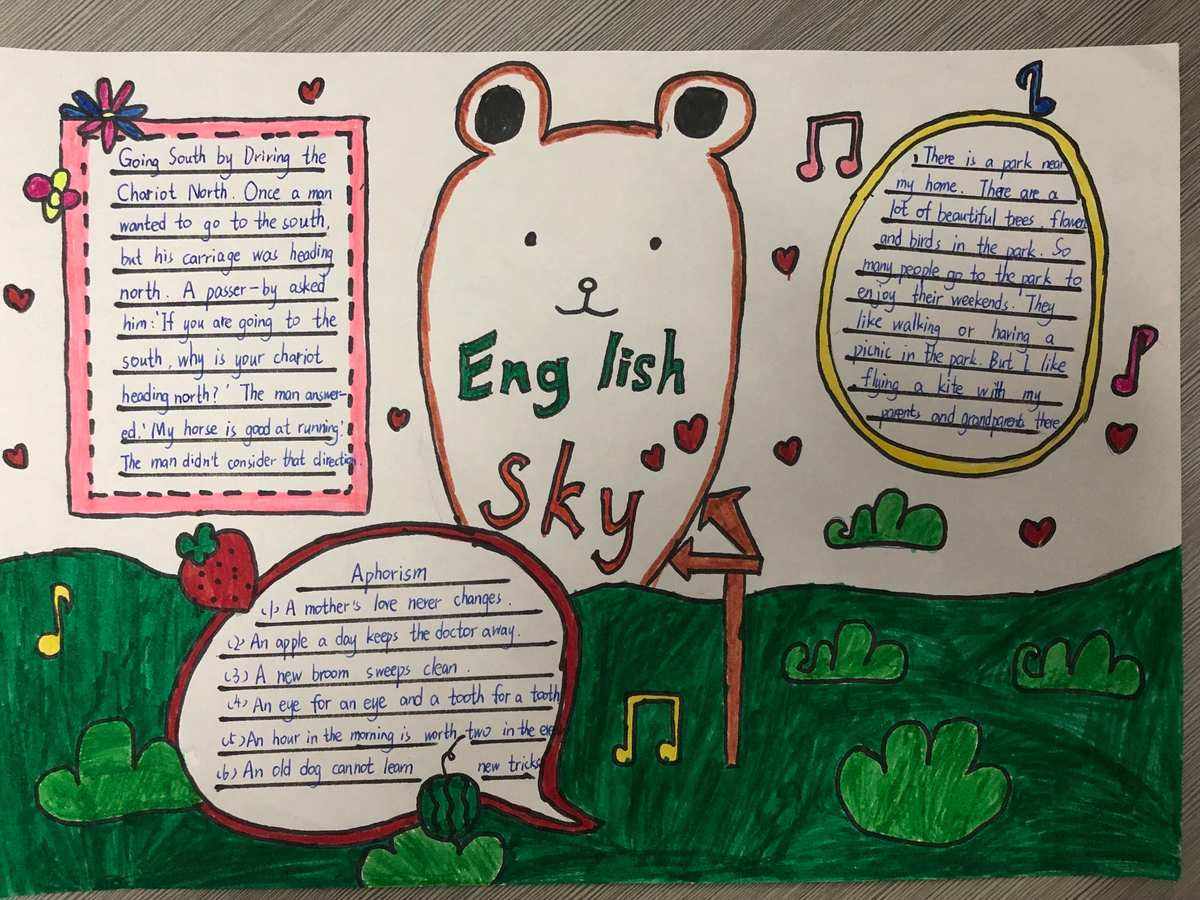 Going South by Driving the
Chariot North. Once a man
wanted to go to the south,
but his carriage was heading
north. A passer-by asked
him:'If you are going to the
south, why is your chariot
heading north?' The man answer-
ed.'My horse is good at running.'
The man didn't consider that direction.
English
Sky
There is a park near
my home. There are a
lot of beautiful trees, flower
and birds in the park. So
many people go to the park to
enjoy their weekends. They
like walking or having a
picnic in the park. But I like
flying a kite with my
parents and grandparents there
Aphorism
(1) A mother's love never changes.
(2) An apple a day keeps the doctor away.
(3) A new broom sweeps clean.
(4) An eye for an eye and a tooth for a tooth
(5) An hour in the morning is worth two in the eve
(6) An old dog cannot learn new tricks